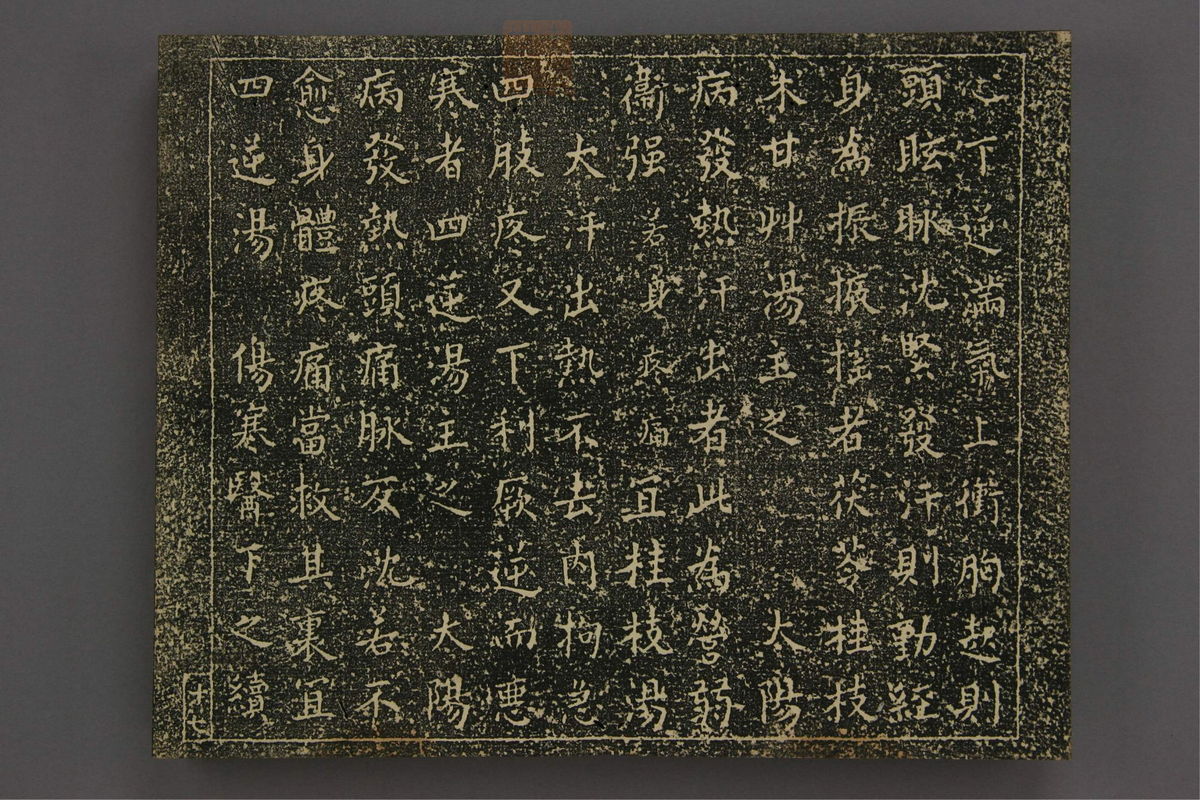 心下逆滿氣上衝胸起則
頭眩脉沈緊發汗則動經
身為振振搖者茯苓桂枝
朮甘艸湯主之 太陽
病發熱汗出者此為營弱
衞强 若身疼痛 宜桂枝湯
大汗出熱不去內拘急
四肢疼又下利厥逆而悪
寒者四逆湯主之 太陽
病發熱頭痛脉反沈若不
愈身體疼痛當救其裏宜
四逆湯 傷寒醫下之續
十七